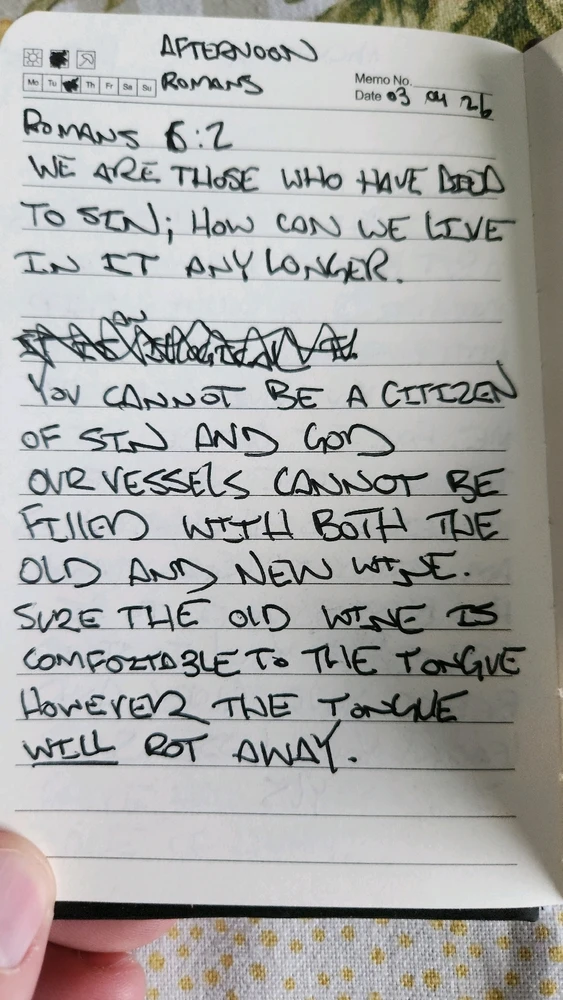 AFTERNOON
Mo Tu Th Fr Sa Su ROMANS
Memo No.
Date 03 04 26
ROMANS 6:2
WE ARE THOSE WHO HAVE DIED
TO SIN; HOW CAN WE LIVE
IN IT ANY LONGER.
AN
YOU CANNOT BE A CITIZEN
OF SIN AND GOD
OUR VESSELS CANNOT BE
FILLED WITH BOTH THE
OLD AND NEW WINE.
SURE THE OLD WINE IS
COMFORTABLE TO THE TONGUE
HOWEVER THE TONGUE
WILL ROT AWAY.